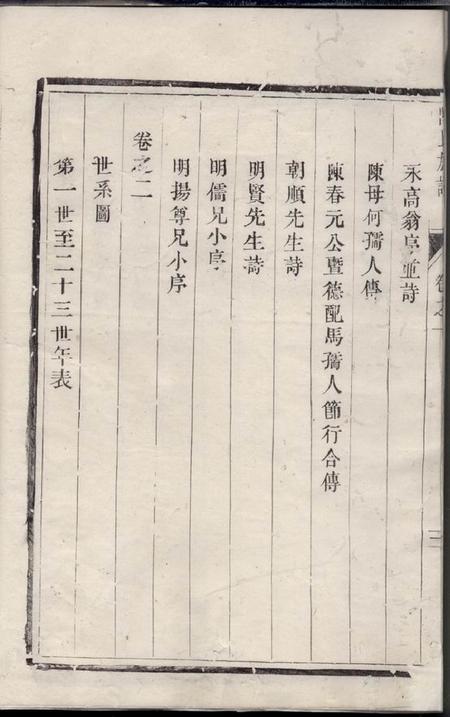 永高翁序並詩
陳母何孺人傳
陳春元公暨德配馬孺人節行合傳
朝順先生詩
明賢先生詩
明儒兄小序
明揚尊兄小序
卷之二
世系圖
第一世至二十三世年表